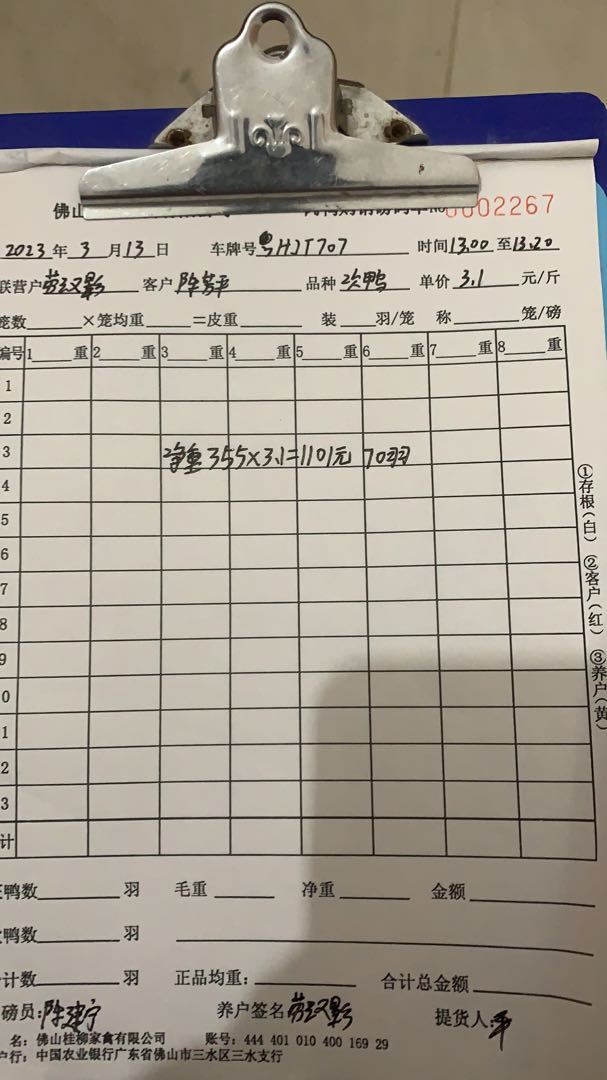 佛山 No 0002267
2023 年 3 月 13 日 车牌号 粤HJT707 时间 13.00 至 13.20
联营户 客户 陈 平 品种 次鸭 单价 3.1 元/斤
笼数 ×笼均重 =皮重 装 羽/笼 称 笼/磅
编号 1 重 2 重 3 重 4 重 5 重 6 重 7 重 8 重
1
2
3 净重 355×3.1=1101元 70羽
4
5
6
7
8
9
0
1
2
3
计
①存根(白) ②客户(红) ③养户(黄)
鸭数 羽 毛重 净重 金额
鸭数 羽
计数 羽 正品均重: 合计总金额
磅员: 陈建宁 养户签名 提货人: 平
名: 佛山桂柳家禽有限公司 账号: 444 401 010 400 169 29
户行: 中国农业银行广东省佛山市三水区三水支行